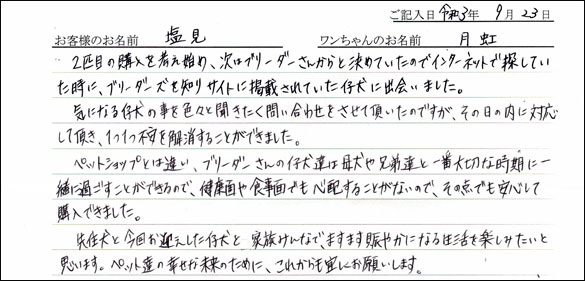 ご記入日 令和3年 9月 23日
お客様のお名前 塩見 ワンちゃんのお名前 月虹
2匹目の購入を考え始め、次はブリーダーさんからと決めていたのでインターネットで探してい
た時に、ブリーダーズを知りサイトに掲載されていた仔犬に出会いました。
気になる仔犬の事を色々と聞きたく問い合わせをさせて頂いたのですが、その日の内に対応
して頂き、1つ1つ不安を解消することができました。
ペットショップとは違い、ブリーダーさんの仔犬達は母犬や兄弟達と一番大切な時期に一
緒に過ごすことができるので、健康面や食事面でも心配することがないので、その点でも安心して
購入できました。
先住犬と今回お迎えした仔犬と家族みんなでますます賑やかになる生活を楽しみたいと
思います。ペット達の幸せな未来のために、これからも宜しくお願いします。